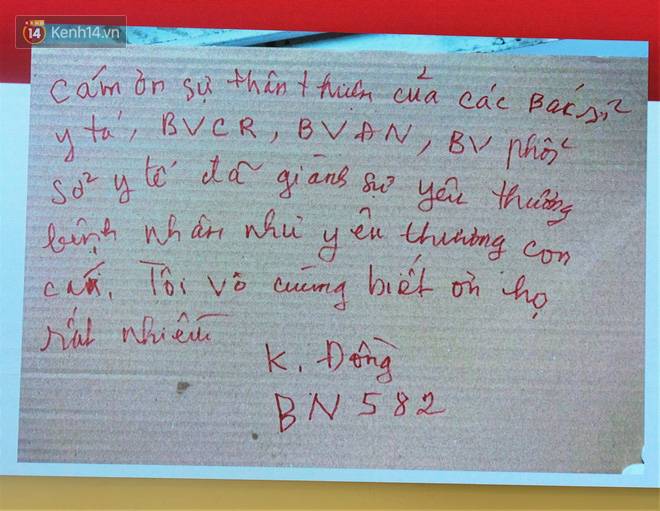 Kenh14.vn
Cám ơn sự thân thiện của các Bác sỉ
y tá, BVCR, BVAN, BV phổi
Sở y tế đã giành sự yêu thương
bệnh nhân như yêu thương con
cái. Tôi vô cùng biết ơn họ
rất nhiều
K. Đông
BN 582